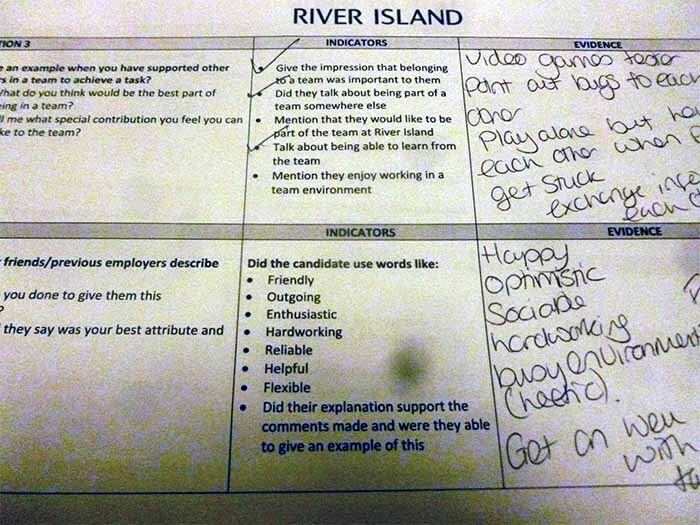 RIVER ISLAND
TION 3
INDICATORS
EVIDENCE
e an example when you have supported other
rs in a team to achieve a task?
What do you think would be the best part of
ing in a team?
ll me what special contribution you feel you can
ke to the team?
• Give the impression that belonging
to a team was important to them
• Did they talk about being part of a
team somewhere else
• Mention that they would like to be
part of the team at River Island
• Talk about being able to learn from
the team
• Mention they enjoy working in a
team environment
Video games tester
Point out bugs to each
other
Play alone but
each other when
get stuck
exchange
each
INDICATORS
EVIDENCE
friends/previous employers describe
you done to give them this
?
they say was your best attribute and
Did the candidate use words like:
• Friendly
• Outgoing
• Enthusiastic
• Hardworking
• Reliable
• Helpful
• Flexible
• Did their explanation support the
comments made and were they able
to give an example of this
Happy
Optimistic
Sociable
hardworking
busy environment
(hectic).
Get on well
with